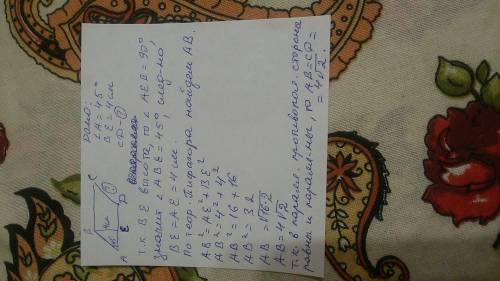 B C
45° 4см ?
A E D
Дано:
∠A = 45°
BE = 4 см
CD - ?
т.к BE высота, то ∠AEB = 90°
значит ∠ABE = 45°, след-но,
BE = AE = 4 см.
По теор. Пифагора найдем AB.
AB² = AE² + BE²
AB² = 4² + 4²
AB² = 16 + 16
AB² = 32
AB = √16·2
AB = 4√2
т.к. в паралел. противопол. стороны
равны и паралельны, то AB = CD =
= 4√2.